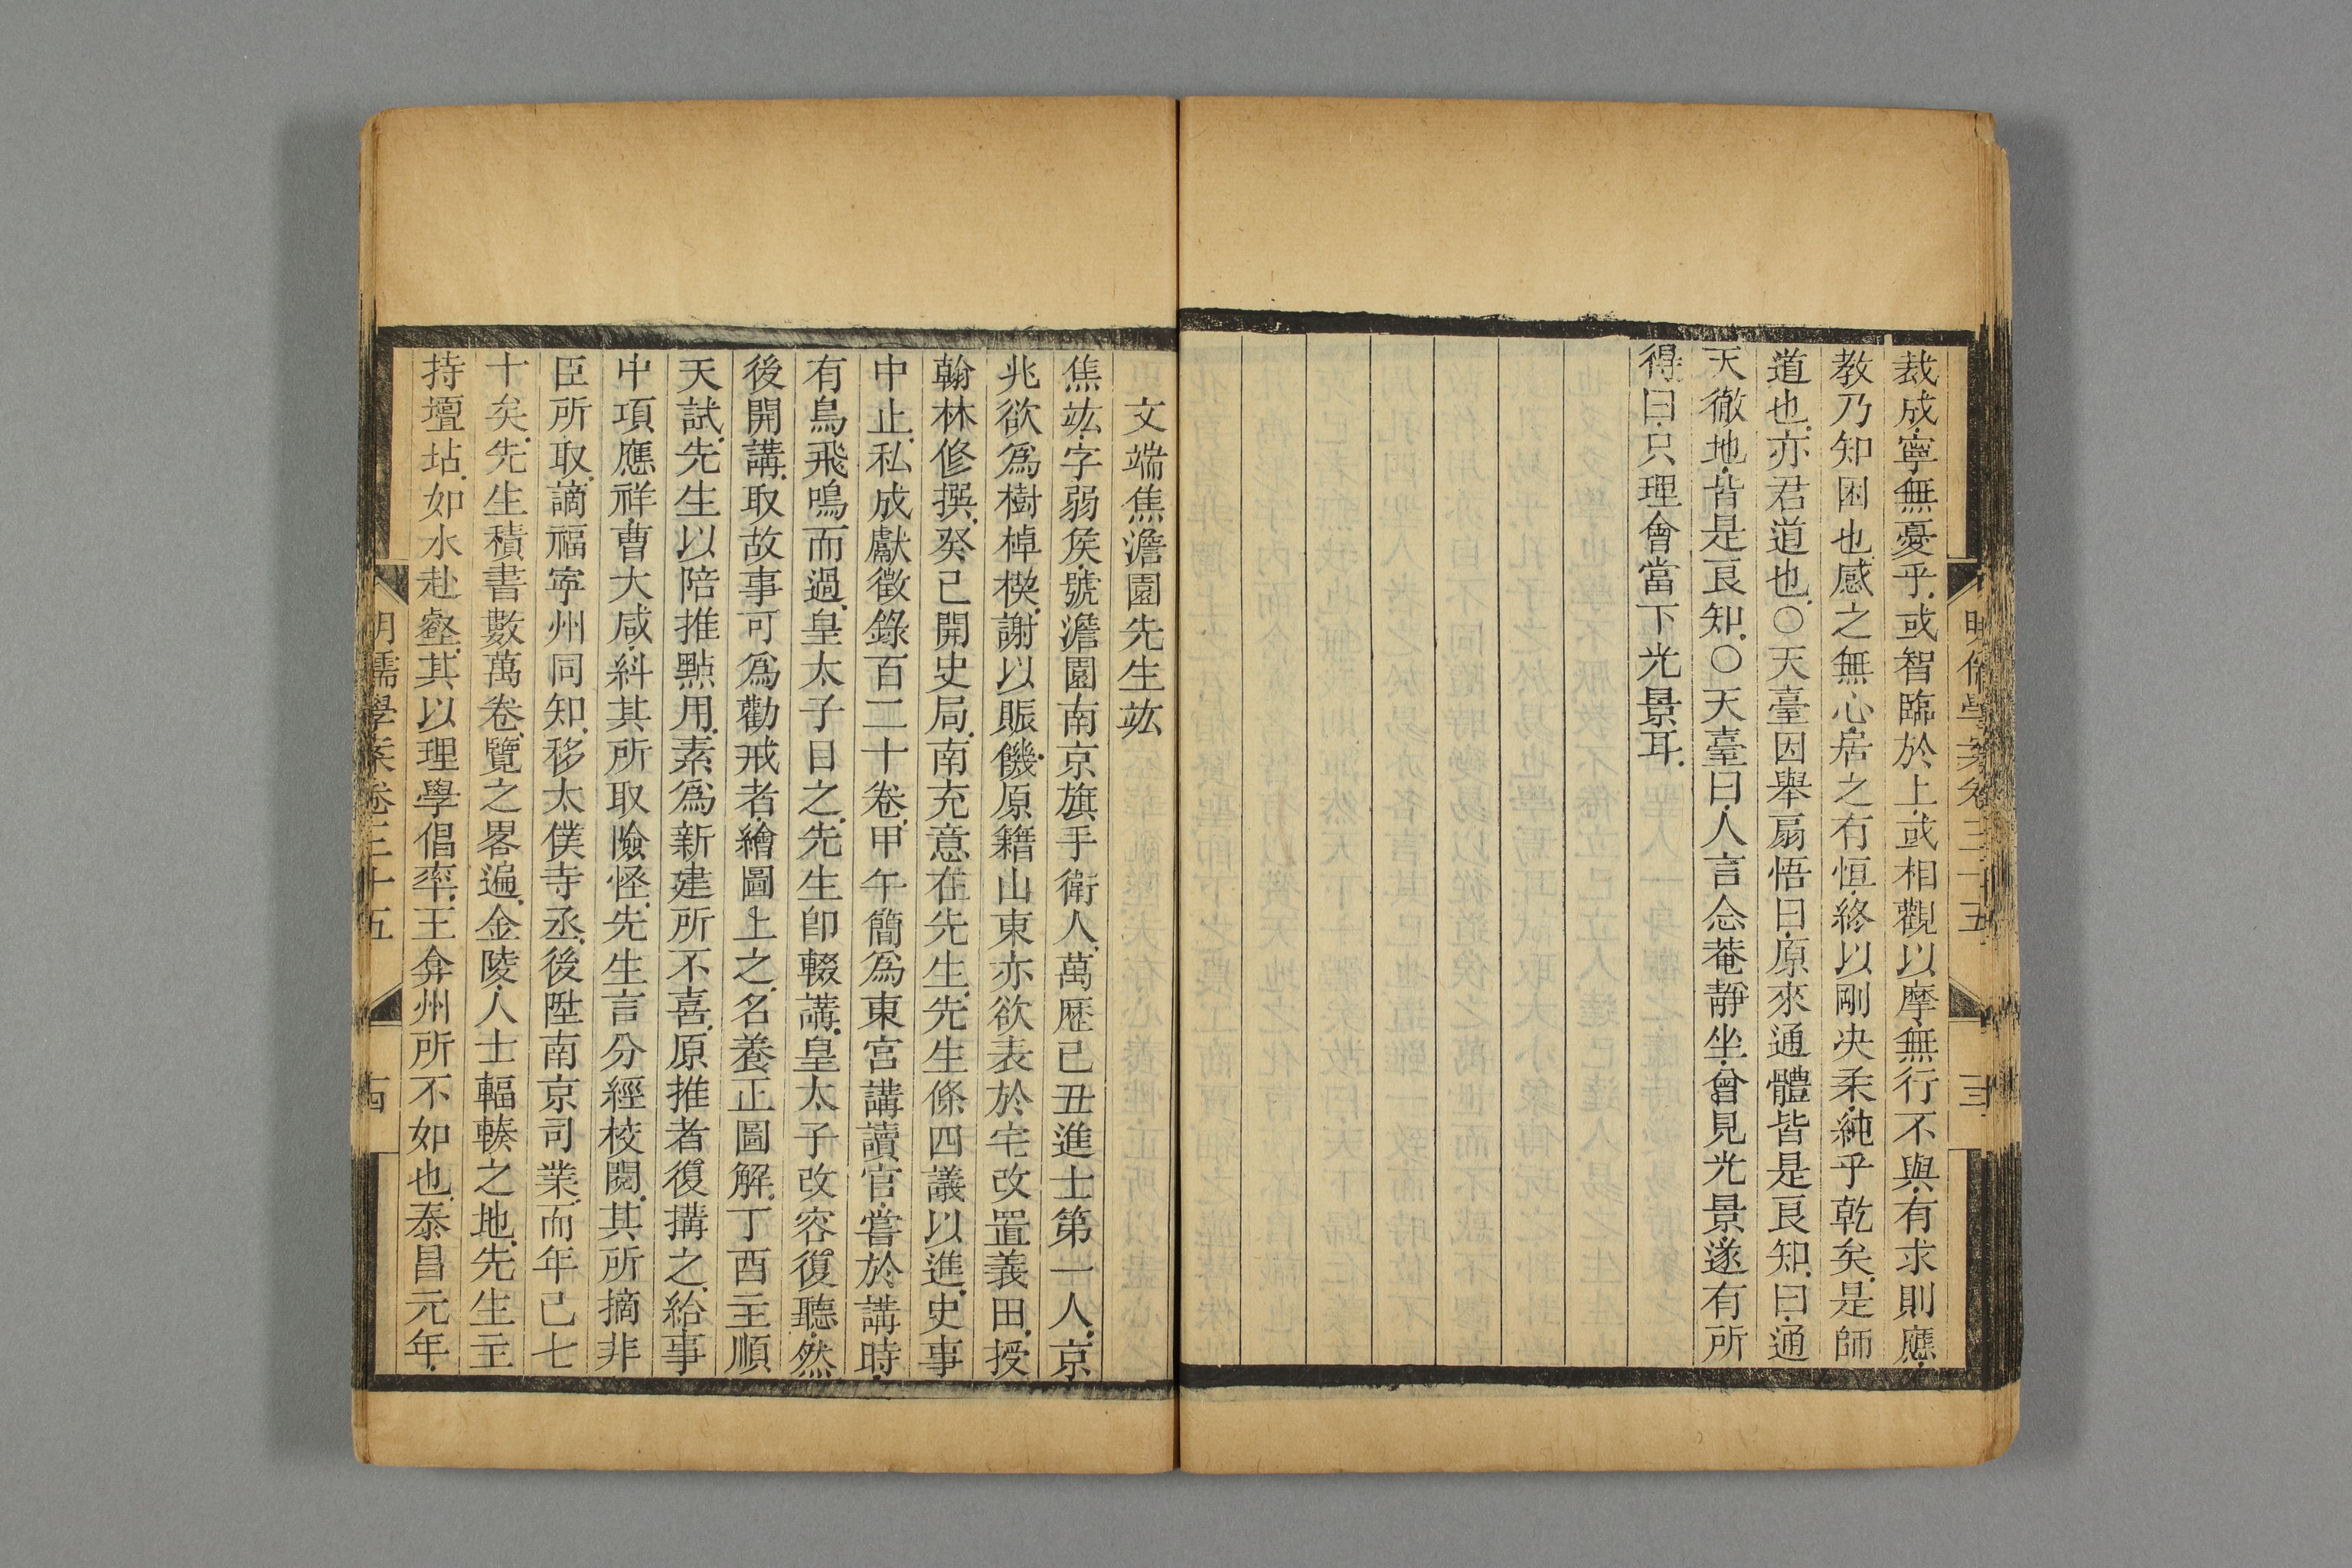 裁成.寧無憂乎.或智臨於上.或相觀以摩.無行不與.有求則應.
教乃知困也.感之無心.居之有恒.終以剛决柔.純乎乾矣.是師
道也.亦君道也.○天臺因舉扇悟曰.原來通體皆是良知.曰.通
天徹地.皆是良知.○天臺曰.人言念菴靜坐.曾見光景.遂有所
得.曰.只理會當下光景耳.
明儒學案卷三十五
三
文端焦澹園先生竑
焦竑.字弱侯.號澹園.南京旗手衛人.萬歷己丑進士第一人.京
兆欲爲樹棹楔.謝以賑饑.原籍山東.亦欲表於宅.改置義田.授
翰林修撰.癸巳開史局.南充意在先生.先生條四議以進.史事
中止.私成獻徵錄百二十卷.甲午簡爲東宮講讀官.嘗於講時.
有鳥飛鳴而過.皇太子目之.先生卽輟講.皇太子改容復聽.然
後開講.取故事可爲勸戒者.繪圖上之.名養正圖解.丁酉主順
天試.先生以陪推點用.素爲新建所不喜.原推者復搆之.給事
中項應祥.曹大咸.糾其所取險怪.先生言分經校閱.其所摘非
臣所取.謫福寧州同知.移太僕寺丞.後陞南京司業.而年已七
十矣.先生積書數萬卷.覽之畧遍.金陵人士輻輳之地.先生主
持壇坫.如水赴壑.其以理學倡率.王弇州所不如也.泰昌元年.
明儒學案卷三十五